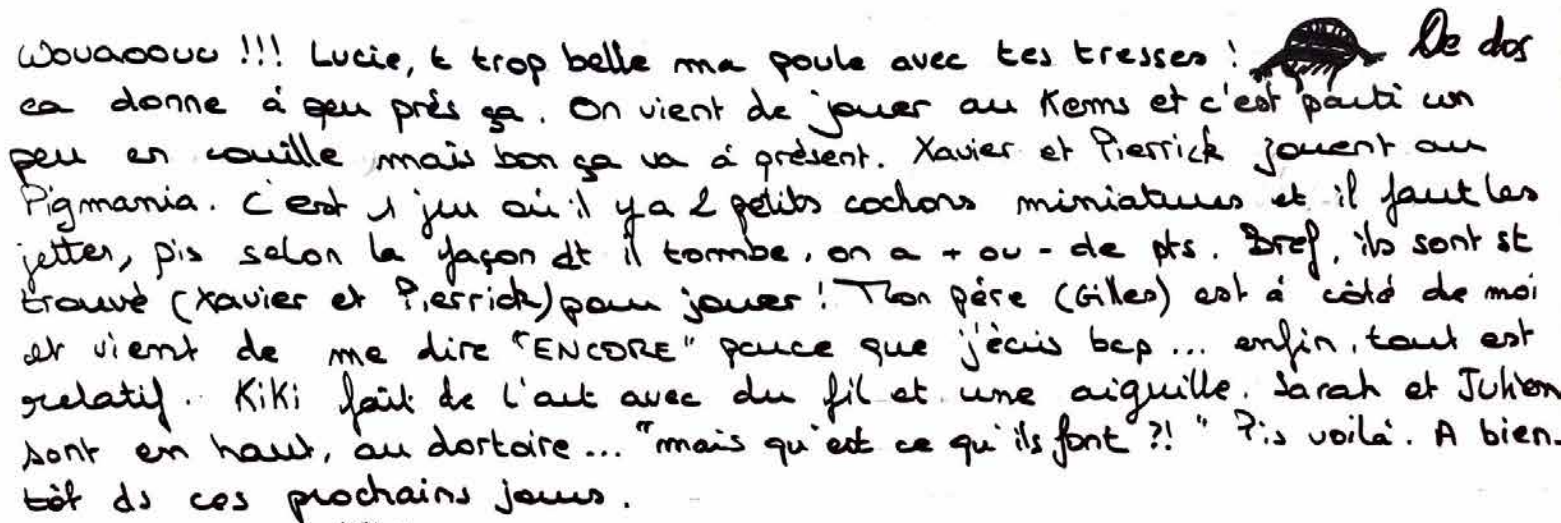 Wouaoouu !!! Lucie, t trop belle ma poule avec tes tresses ! De dos
ca donne à peu prés ça. On vient de jouer au Kems et c'est parti un
peu en couille mais bon ça va à présent. Xavier et Pierrick jouent au
Pigmania. C'est 1 jeu où il y a 2 petits cochons miniatures et il faut les
jetter, pis selon la façon dt il tombe, on a + ou - de pts. Bref, ils sont st
trouvé (Xavier et Pierrick) pour jouer ! Mon père (Gilles) est à côté de moi
et vient de me dire "ENCORE" parce que j'écris bcp ... enfin, tout est
relatif. KiKi fait de l'art avec du fil et une aiguille. Sarah et Julien
sont en haut, au dortoire ... "mais qu'est ce qu'ils font ?!" Pis voilà. A bien-
tôt ds ces prochains jours.